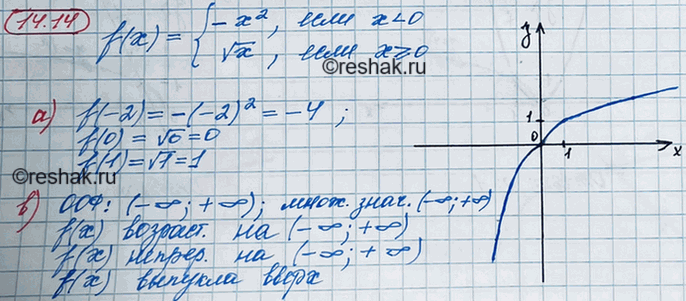 14.14
f(x) = { -x², если x<0
√x, если x≥0
©reshak.ru
а) f(-2) = -(-2)² = -4 ;
f(0) = √0 = 0
f(1) = √1 = 1
©reshak.ru
в) ООФ: (-∞; +∞); множ. знач. (-∞; +∞)
f(x) возраст. на (-∞; +∞)
f(x) непрер. на (-∞; +∞)
f(x) выпукла вверх
y
1
0
1
x